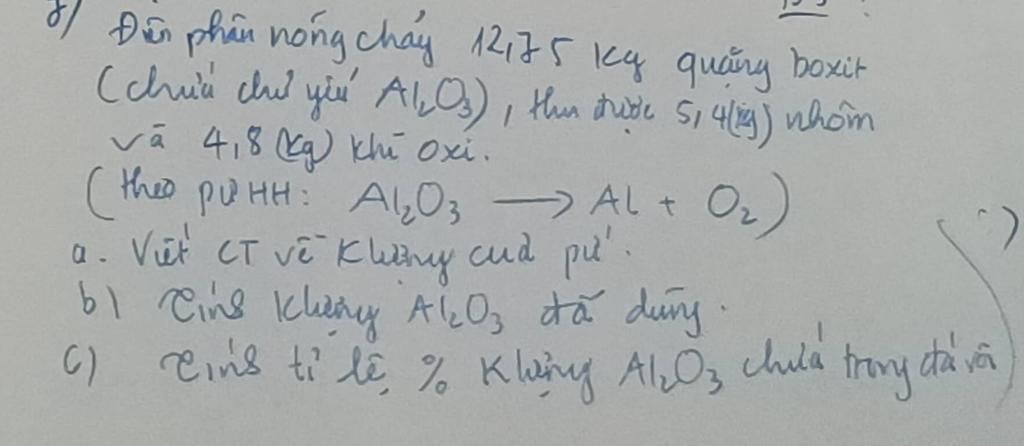 8/ Điện phân nóng chảy 12,75 kg quặng boxit
(chứa chủ yếu Al₂O₃), thu được 5,4(kg) nhôm
và 4,8 (kg) khí oxi.
(theo pư HH: Al₂O₃ → Al + O₂)
a. Viết CT về khối lượng của pứ.
b) Tính khối lượng Al₂O₃ đã dùng.
c) Tính tỉ lệ % khối lượng Al₂O₃ chứa trong đá vôi